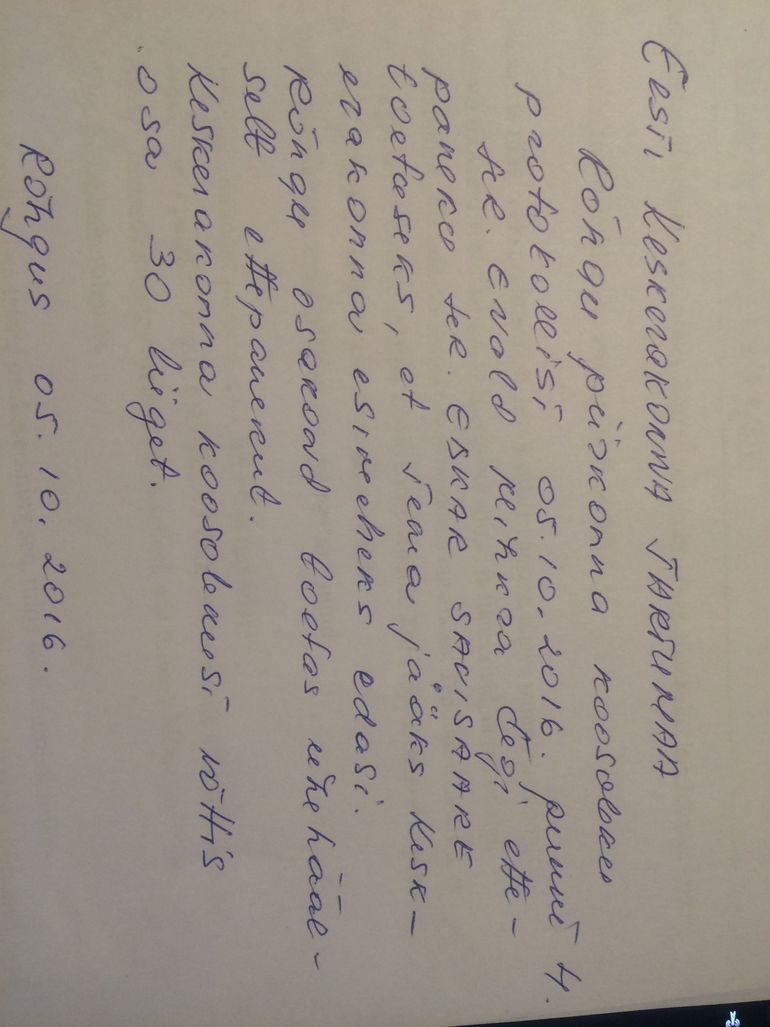 EESTI KESKERAKONNA TARTUMAA
Rõngu piirkonna koosoleku
protokollist 05.10.2016. punkt 4.
hr. Evald tegi ette-
paneku hr. EDGAR SAVISAARE
toetuseks, et tema jääks Kesk-
erakonna esimeheks edasi.
Rõngu osakond toetas ühehääl-
selt ettepanekut.
Keskerakonna koosolekust võttis
osa 30 liiget.
Rõngus 05.10.2016.